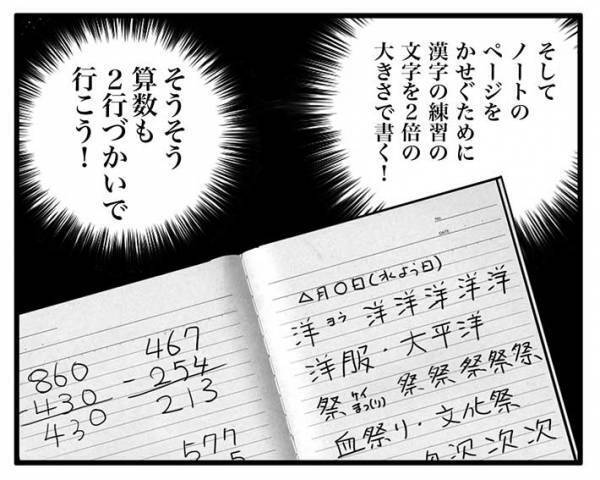 そして
ノートの
ページを
かせぐために
漢字の練習の
文字を2倍の
大きさで書く!
そうそう
算数も
2行づかいで
行こう!
No.
DATE
△月〇日(水よう日)
洋 ヨウ 洋洋洋洋洋
洋服・大平洋
祭 サイ まつ(り) 祭祭祭祭祭
血祭り・文化祭
次次次
860
-430
430
467
-254
213
577